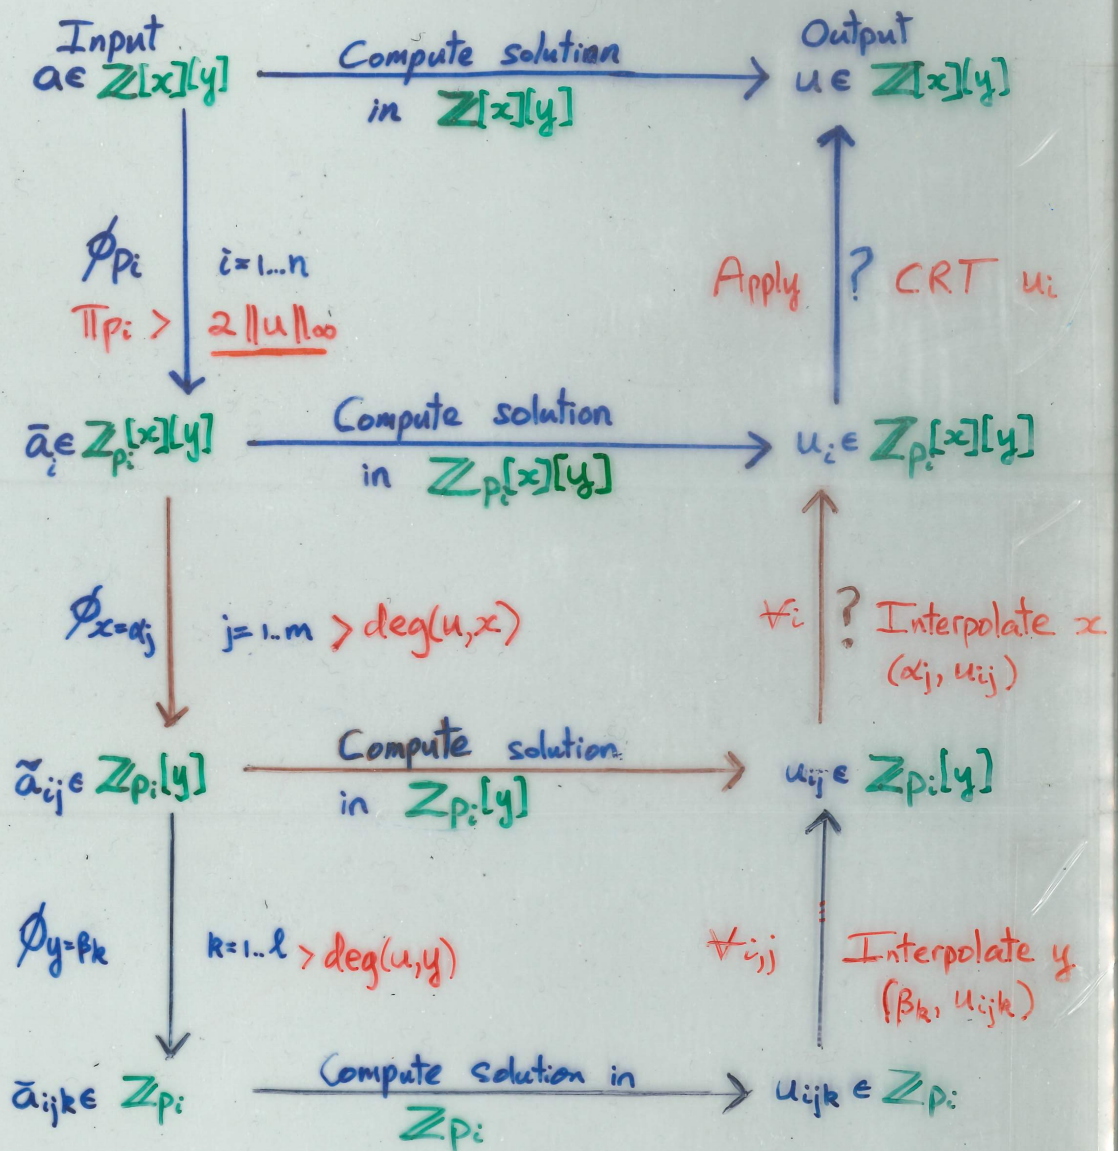 Input
a ∈ ℤ[x][y]
Compute solution
in ℤ[x][y]
Output
u ∈ ℤ[x][y]
ϕpᵢ i=1...n
Πpᵢ > 2‖u‖∞
Apply ? CRT uᵢ
āᵢ ∈ ℤpᵢ[x][y]
Compute solution
in ℤpᵢ[x][y]
uᵢ ∈ ℤpᵢ[x][y]
ϕx=αj j=1..m > deg(u,x)
∀i ? Interpolate x
(αj, uij)
ãij ∈ ℤpᵢ[y]
Compute solution
in ℤpᵢ[y]
uij ∈ ℤpᵢ[y]
ϕy=βk k=1..l > deg(u,y)
∀i,j Interpolate y
(βk, uijk)
ăijk ∈ ℤpᵢ
Compute solution in
ℤpᵢ
uijk ∈ ℤpᵢ